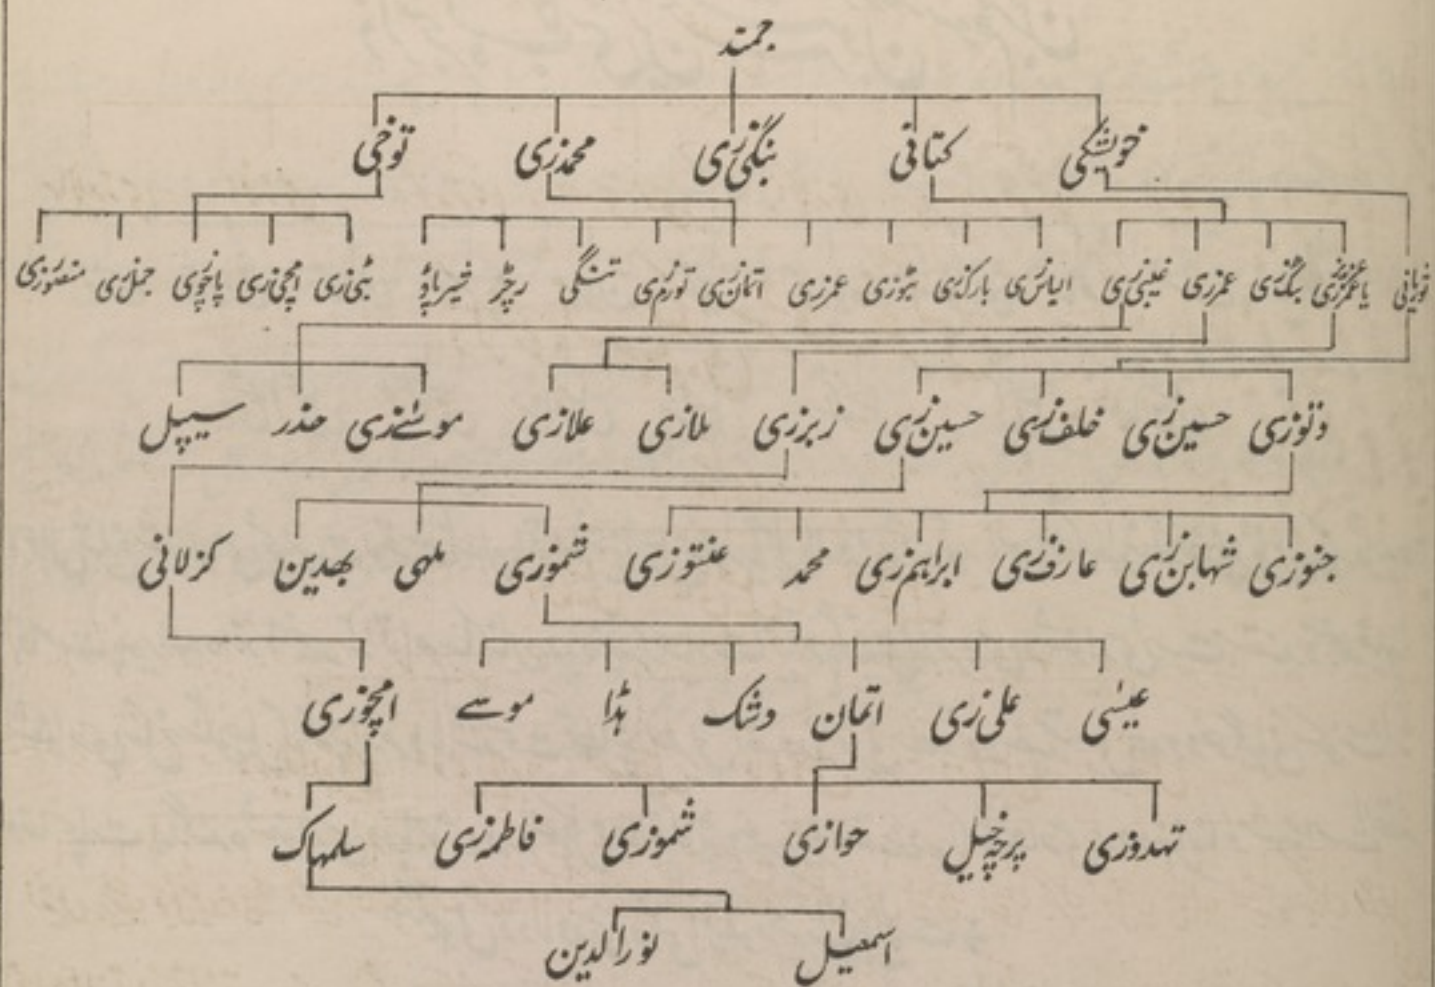 جمند
خویشکی کتانی بنگی زی محمدزی توخی
یا عمرزی عمرزی غلبنی زی الیاس زی بارک زی بوزی عمرزی اتمان زی تورم زی تنگی رچڑ شیرپاؤ بی زی اچی زی منصورزی
وتوزی حسین زی خلف زی حسین زی زبرزی ملازی علازی موسےٰ زی حذر سیپل
جنوزی شهابن زی عارف زی ابراہیم زی محمد عنتوزی شموزی ملهی بهدین کزلانی
عیسٰی علی زی اتمان وشک ہڈا موسے اچوزی
تهدوزی پرچه خیل حوازی شموزی فاطمه زی سلمہاک
اسمعیل نورالدین